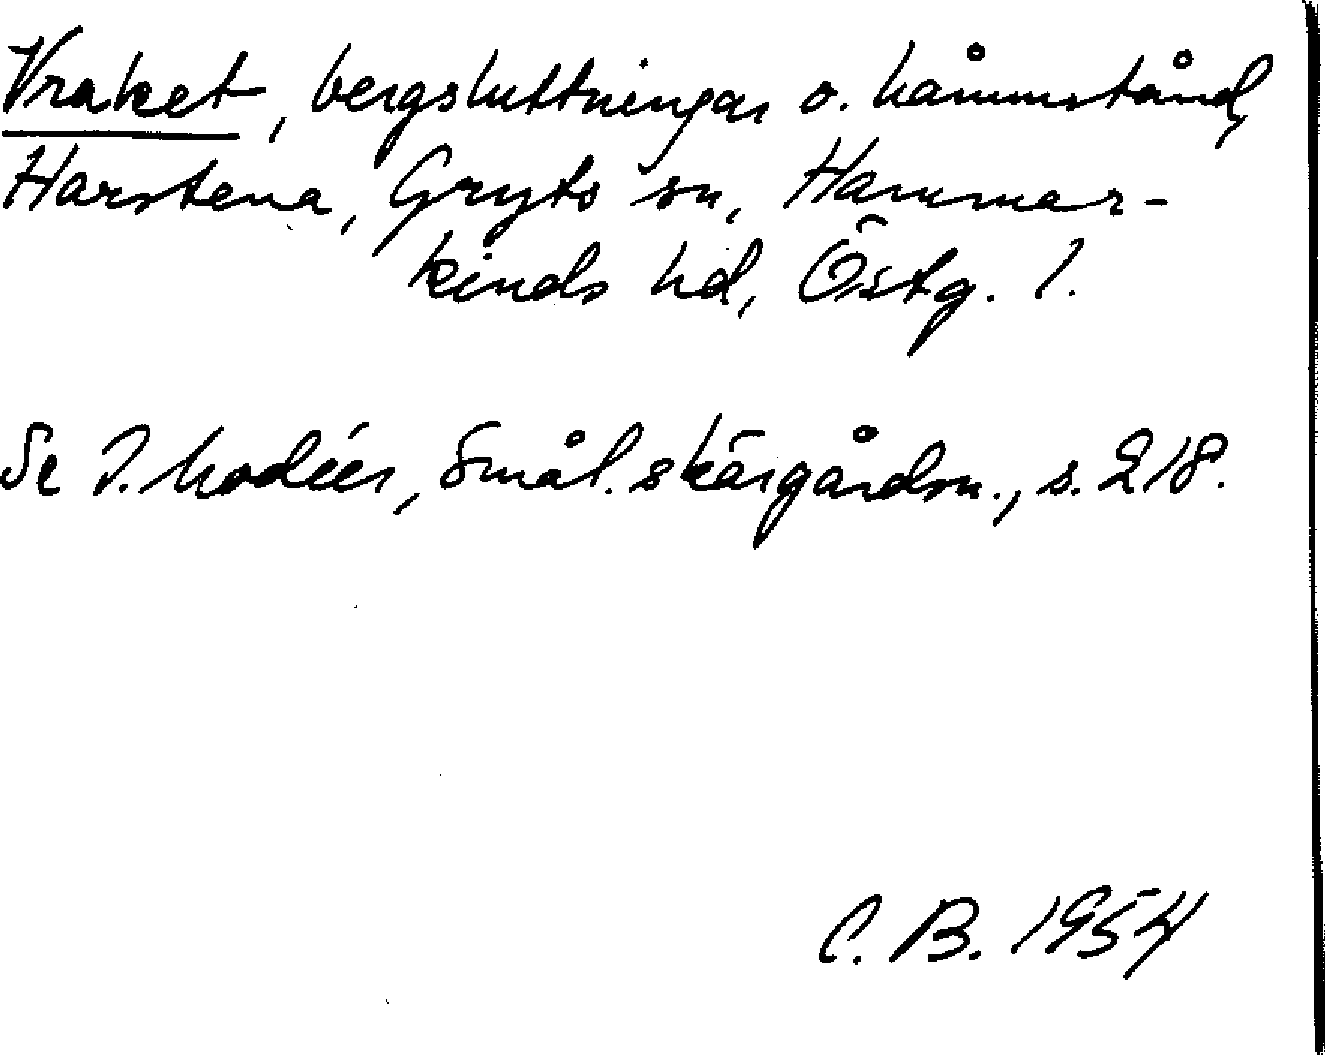 Vraket, bergsluttningar o. hammstånd,
Harstena, Gryts sn, Hammar-
kinds hd, Östg. l.
Se I. Modéer, Smål. skärgårdsn., s. 218.
C. B. 1954